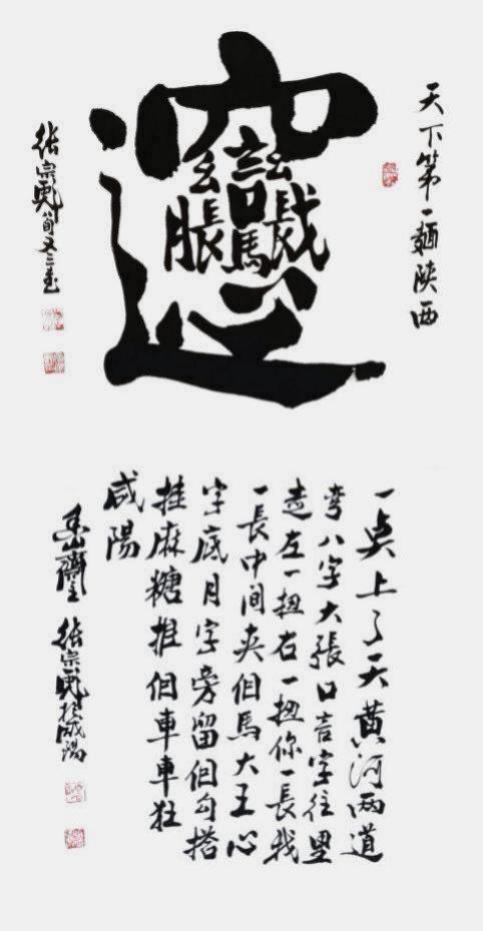 天下第一麵陝西
𰻞
一点上了天黄河两道
弯八字大張口言字往里
走左一扭右一扭你一長我
一長中间夹個馬大王心
字底月字旁留個勾搭
挂麻糖推個車車狂
咸陽
張宗彪於咸陽